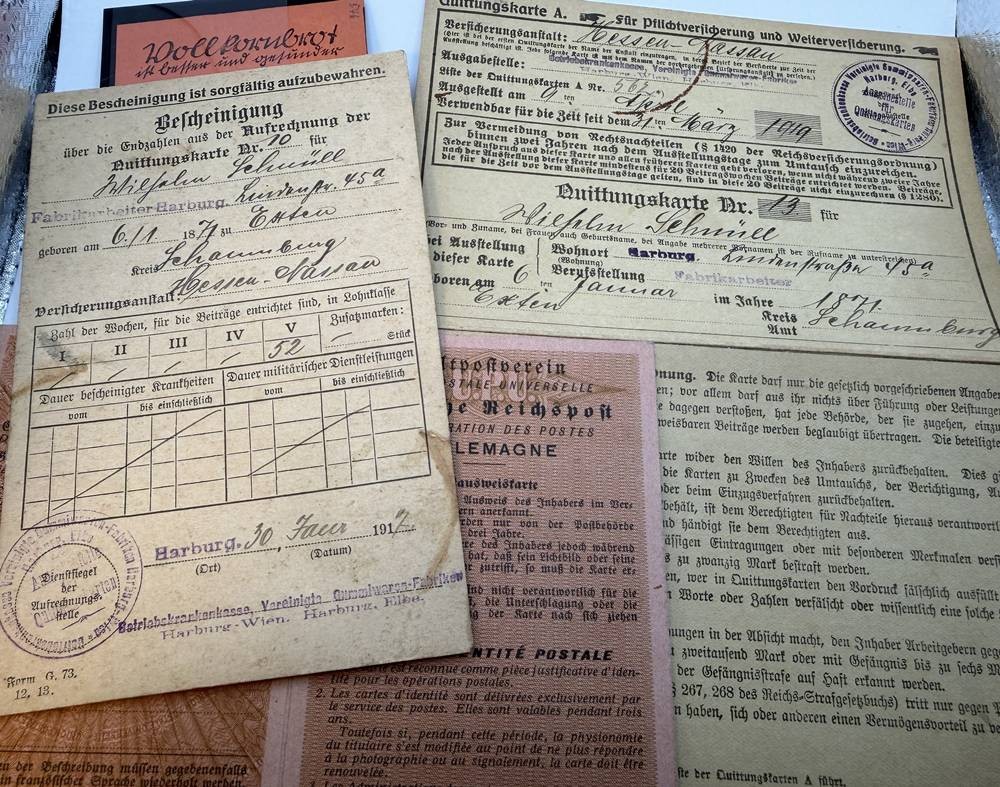 Vollkornbrot
ist besser und gesünder
Diese Bescheinigung ist sorgfältig aufzubewahren.
Bescheinigung
über die Endzahlen aus der Aufrechnung der
Quittungskarte Nr. 10 für
Wilhelm Schmüll
Fabrikarbeiter Harburg, Lindenstr. 45a
geboren am 6/1 1871 zu Exten
Kreis Schaumburg
Versicherungsanstalt: Hessen-Nassau
Zahl der Wochen, für die Beiträge entrichtet sind, in Lohnklasse
Zusatzmarken:
I II III IV V
52
Stück
Dauer bescheinigter Krankheiten
Dauer militärischer Dienstleistungen
vom bis einschließlich vom bis einschließlich
Harburg. 30. Janr 1917
(Ort) (Datum)
Dienstsiegel
der
Aufrechnungs-
stelle
Betriebskrankenkasse, Vereinigte Gummiwaren-Fabriken
Harburg-Wien. Harburg, Elbe.
Form G. 73.
12. 13.
Quittungskarte A. Für Pflichtversicherung und Weiterversicherung.
Versicherungsanstalt: Hessen-Nassau
Ausgabestelle:
Liste der Quittungskarten A Nr.
Ausgestellt am 9ten April
Verwendbar für die Zeit seit dem 31. ten März 1919
Ausgabestelle
für
Quittungskarten
Zur Vermeidung von Rechtsnachteilen (§ 1420 der Reichsversicherungsordnung)
binnen zwei Jahren nach dem Ausstellungstage zum Umtausch einzureichen.
Jeder Anspruch aus dieser Karte und allen früheren Karten geht verloren, wenn nicht während zweier Jahre
nach dem Ausstellungstage dieser Karte mindestens für 20 Beitragswochen Beiträge entrichtet werden. Beiträge,
die für die Zeit vor dem Ausstellungstage gelten, sind in diese 20 Beiträge nicht einzurechnen (§ 1280).
Quittungskarte Nr. 13 für
Wilhelm Schmüll
Vor- und Zuname, bei Frauen auch Geburtsname, bei Angabe mehrerer Vornamen ist der Rufname zu unterstreichen)
bei Ausstellung
dieser Karte
Wohnort Harburg. Lindenstraße 45a
(Wohnung)
Berufsstellung Fabrikarbeiter
boren am 6 ten Januar im Jahre 1871
Exten
Kreis
Amt Schaumburg
ltpostverein
STALE UNIVERSELLE
he Reichspost
RATION DES POSTES
LEMAGNE
ausweiskarte
Ausweis des Inhabers im Ver-
ern anerkannt.
rden nur von der Postbehörde
drei Jahre.
re des Inhabers jedoch während
rt hat, daß sein Lichtbild oder seine
zutrifft, so muß die Karte er-
ind nicht verantwortlich für die
die Unterschlagung oder die
ng der Karte nach sich ziehen
ENTITÉ POSTALE
arte est reconnue comme pièce justificative d'iden-
tité pour les opérations postales.
2. Les cartes d'identité sont délivrées exclusivement par
le service des postes. Elles sont valables pendant trois
ans.
Toutefois si, pendant cette période, la physionomie
du titulaire s'est modifiée au point de ne plus répondre
à la photographie ou au signalement, la carte doit être
renouvelée.
nung. Die Karte darf nur die gesetzlich vorgeschriebenen Angaben
en; vor allem darf aus ihr nichts über Führung oder Leistungen
dagegen verstoßen, hat jede Behörde, der sie zugehen, einzu
weisbaren Beiträge werden beglaubigt übertragen. Die beteiligte
rte wider den Willen des Inhabers zurückbehalten. Dies gi
die Karten zu Zwecken des Umtauschs, der Berichtigung, A
der beim Einzugsverfahren zurückbehalten.
behält, ist dem Berechtigten für Nachteile hieraus verantwortl
nd händigt sie dem Berechtigten aus.
ässigen Eintragungen oder mit besonderen Merkmalen verse
zu zwanzig Mark bestraft werden.
en, wer in Quittungskarten den Vordruck fälschlich ausfüllt
Worte oder Zahlen verfälscht oder wissentlich eine solche
ungen in der Absicht macht, den Inhaber Arbeitgebern gege
zweitausend Mark oder mit Gefängnis bis zu sechs M
der Gefängnisstrafe auf Haft erkannt werden.
§ 267, 268 des Reichs-Strafgesetzbuchs) tritt nur gegen P
n haben, sich oder anderen einen Vermögensvorteil zu ve
ste der Quittungskarten A führt.
en der Beschreibung müssen gegebenenfalls
in französischer Sprache wiederholt werden.